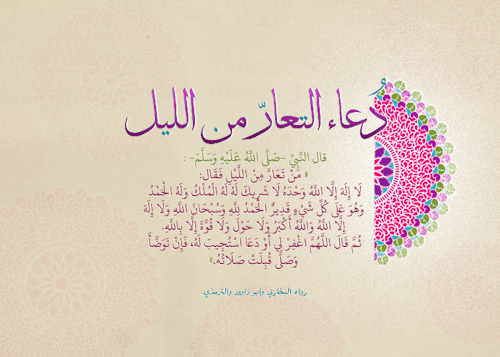 دُعاء التعارّ من الليل
قال النَّبِيُّ -صَلَّى اللهُ عَلَيْهِ وَسَلَّمَ- :
« مَنْ تَعَارَّ مِنَ اللَّيْلِ فَقَالَ:
لَا إِلَهَ إِلَّا اللهُ وَحْدَهُ لَا شَرِيكَ لَهُ لَهُ الْمُلْكُ وَلَهُ الْحَمْدُ
وَهُوَ عَلَى كُلِّ شَيْءٍ قَدِيرٌ الْحَمْدُ لِلَّهِ وَسُبْحَانَ اللهِ وَلَا إِلَهَ
إِلَّا اللهُ وَاللهُ أَكْبَرُ وَلَا حَوْلَ وَلَا قُوَّةَ إِلَّا بِاللهِ.
ثُمَّ قَالَ اللَّهُمَّ اغْفِرْ لِي أَوْ دَعَا اسْتُجِيبَ لَهُ، فَإِنْ تَوَضَّأَ
وَصَلَّى قُبِلَتْ صَلَاتُهُ.»
رواه البخاري وأبو داود والترمذي.